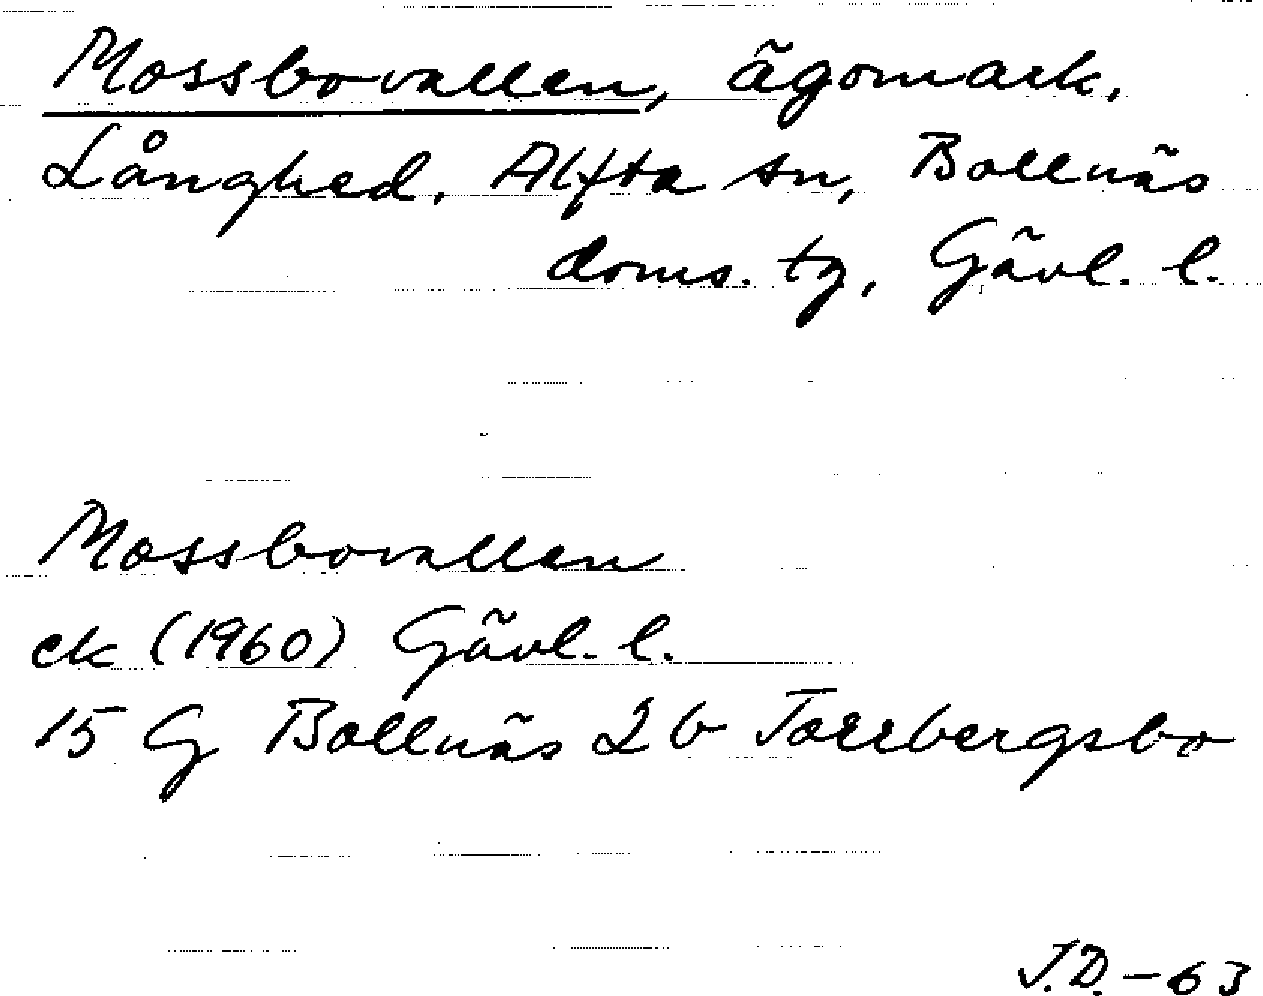 Mossbovallen, ägomark,
Långhed, Alfta sn, Bollnäs
doms. tg, Gävl. l.
Mossbovallen
ek (1960) Gävl. l.
15 G Bollnäs 2 b Torrbergsbo
J.D. - 63